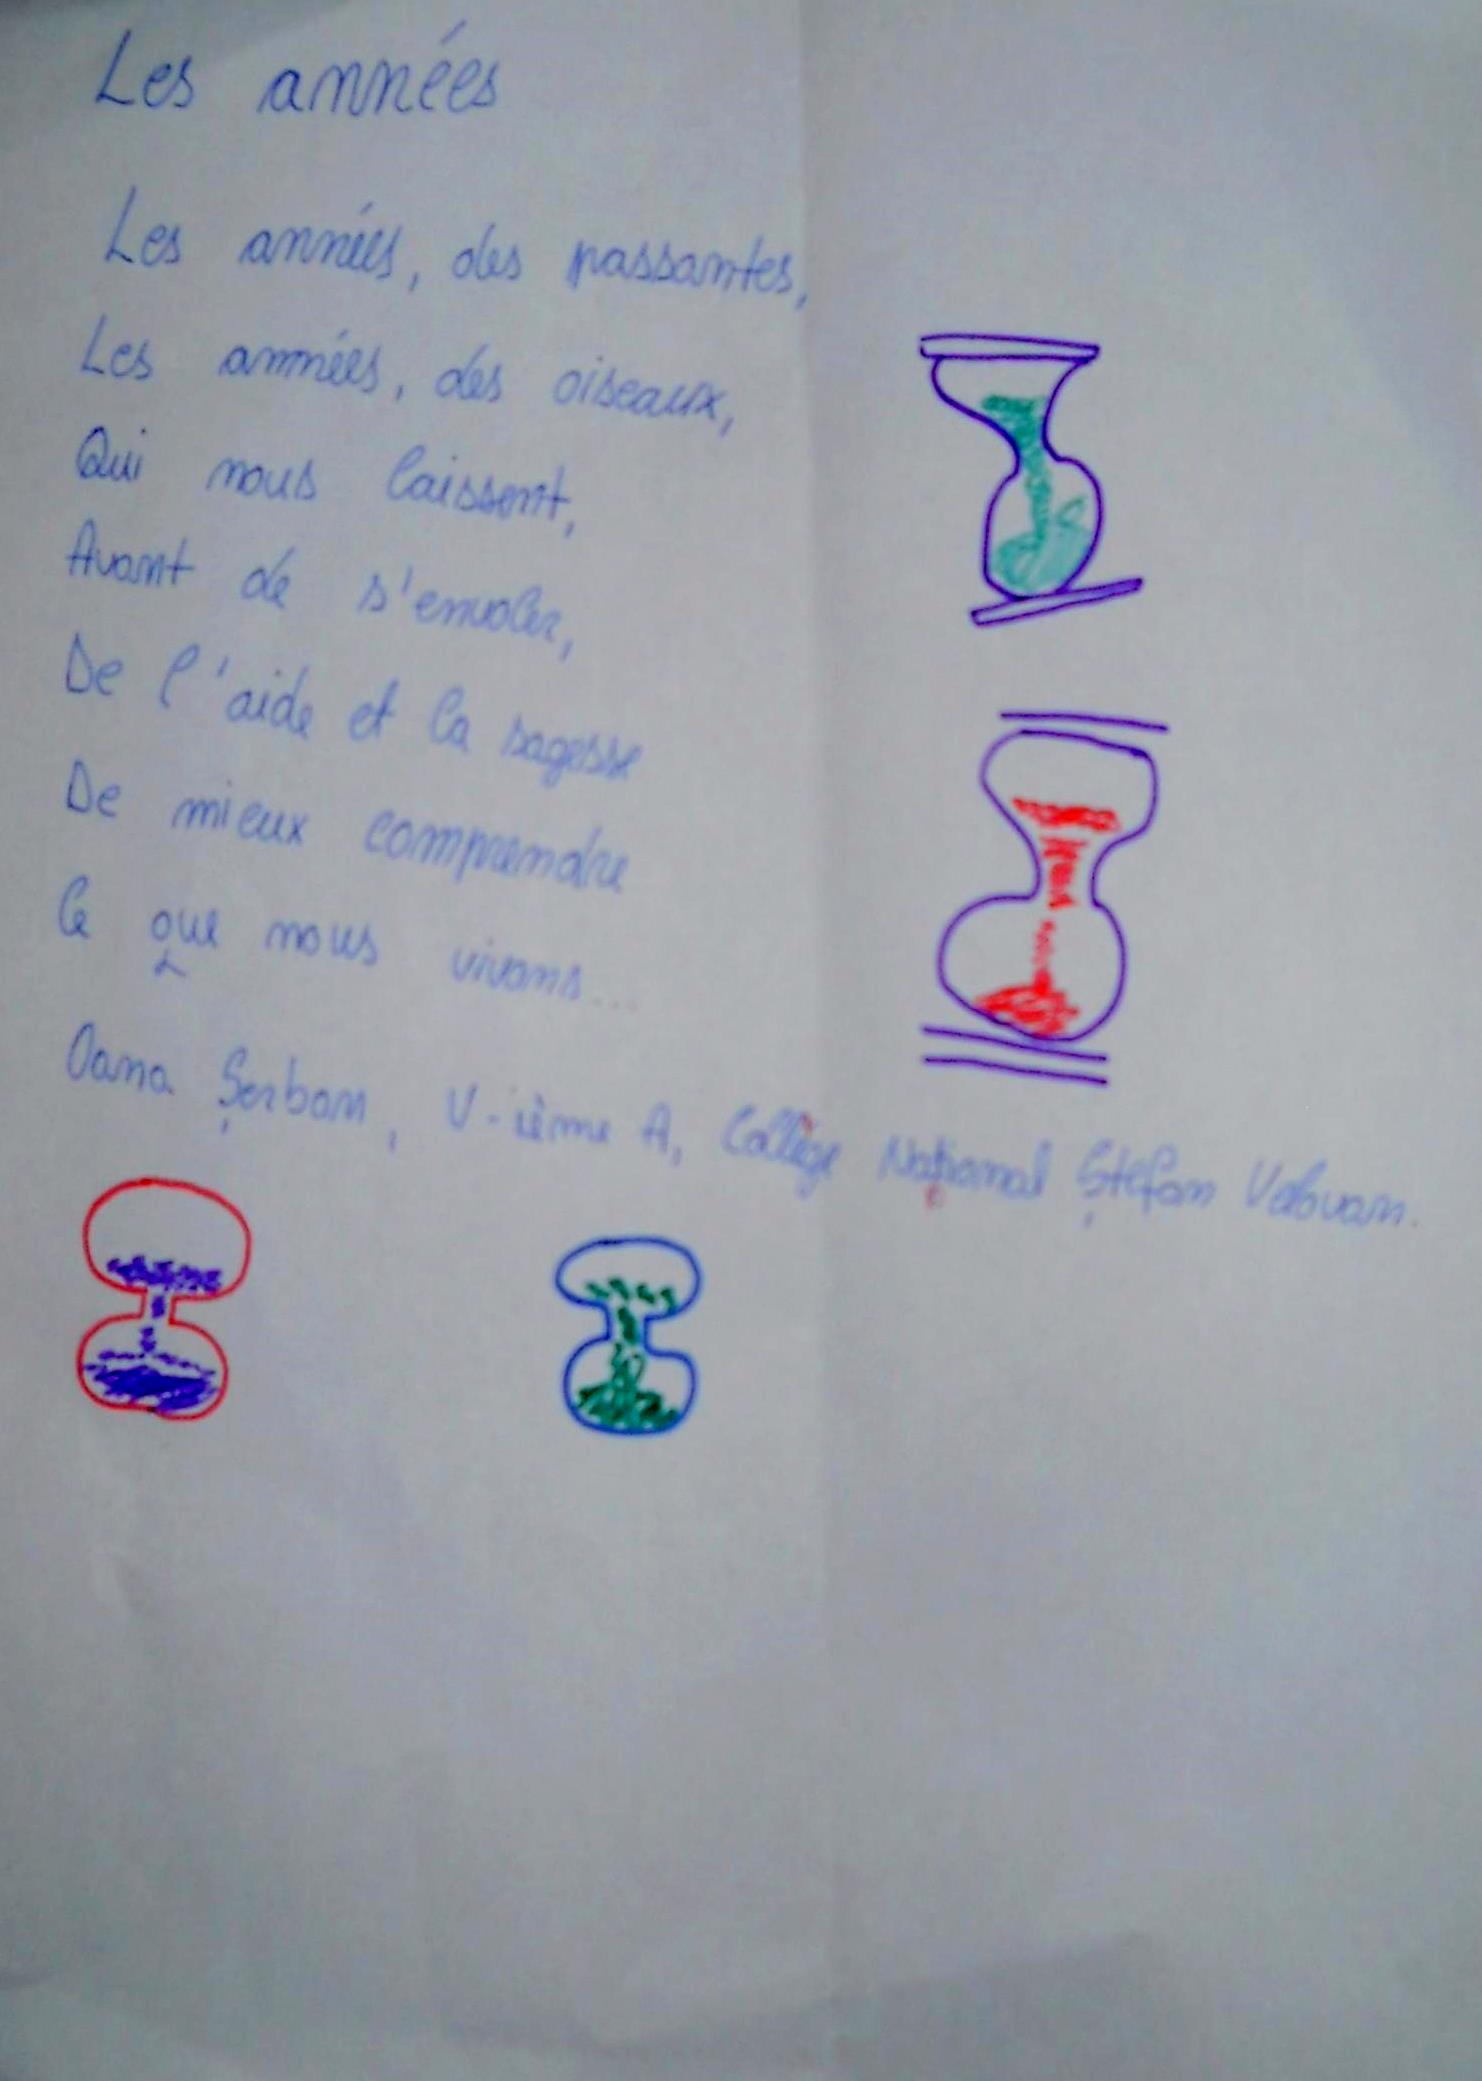 Les années
Les années, des passantes,
Les années, des oiseaux,
Qui nous laissent,
Avant de s'envoler,
De l'aide et la sagesse
De mieux comprendre
Ce que nous vivons...
Oana Șerban, V-ième A, Collège Național Ștefan Velovan.